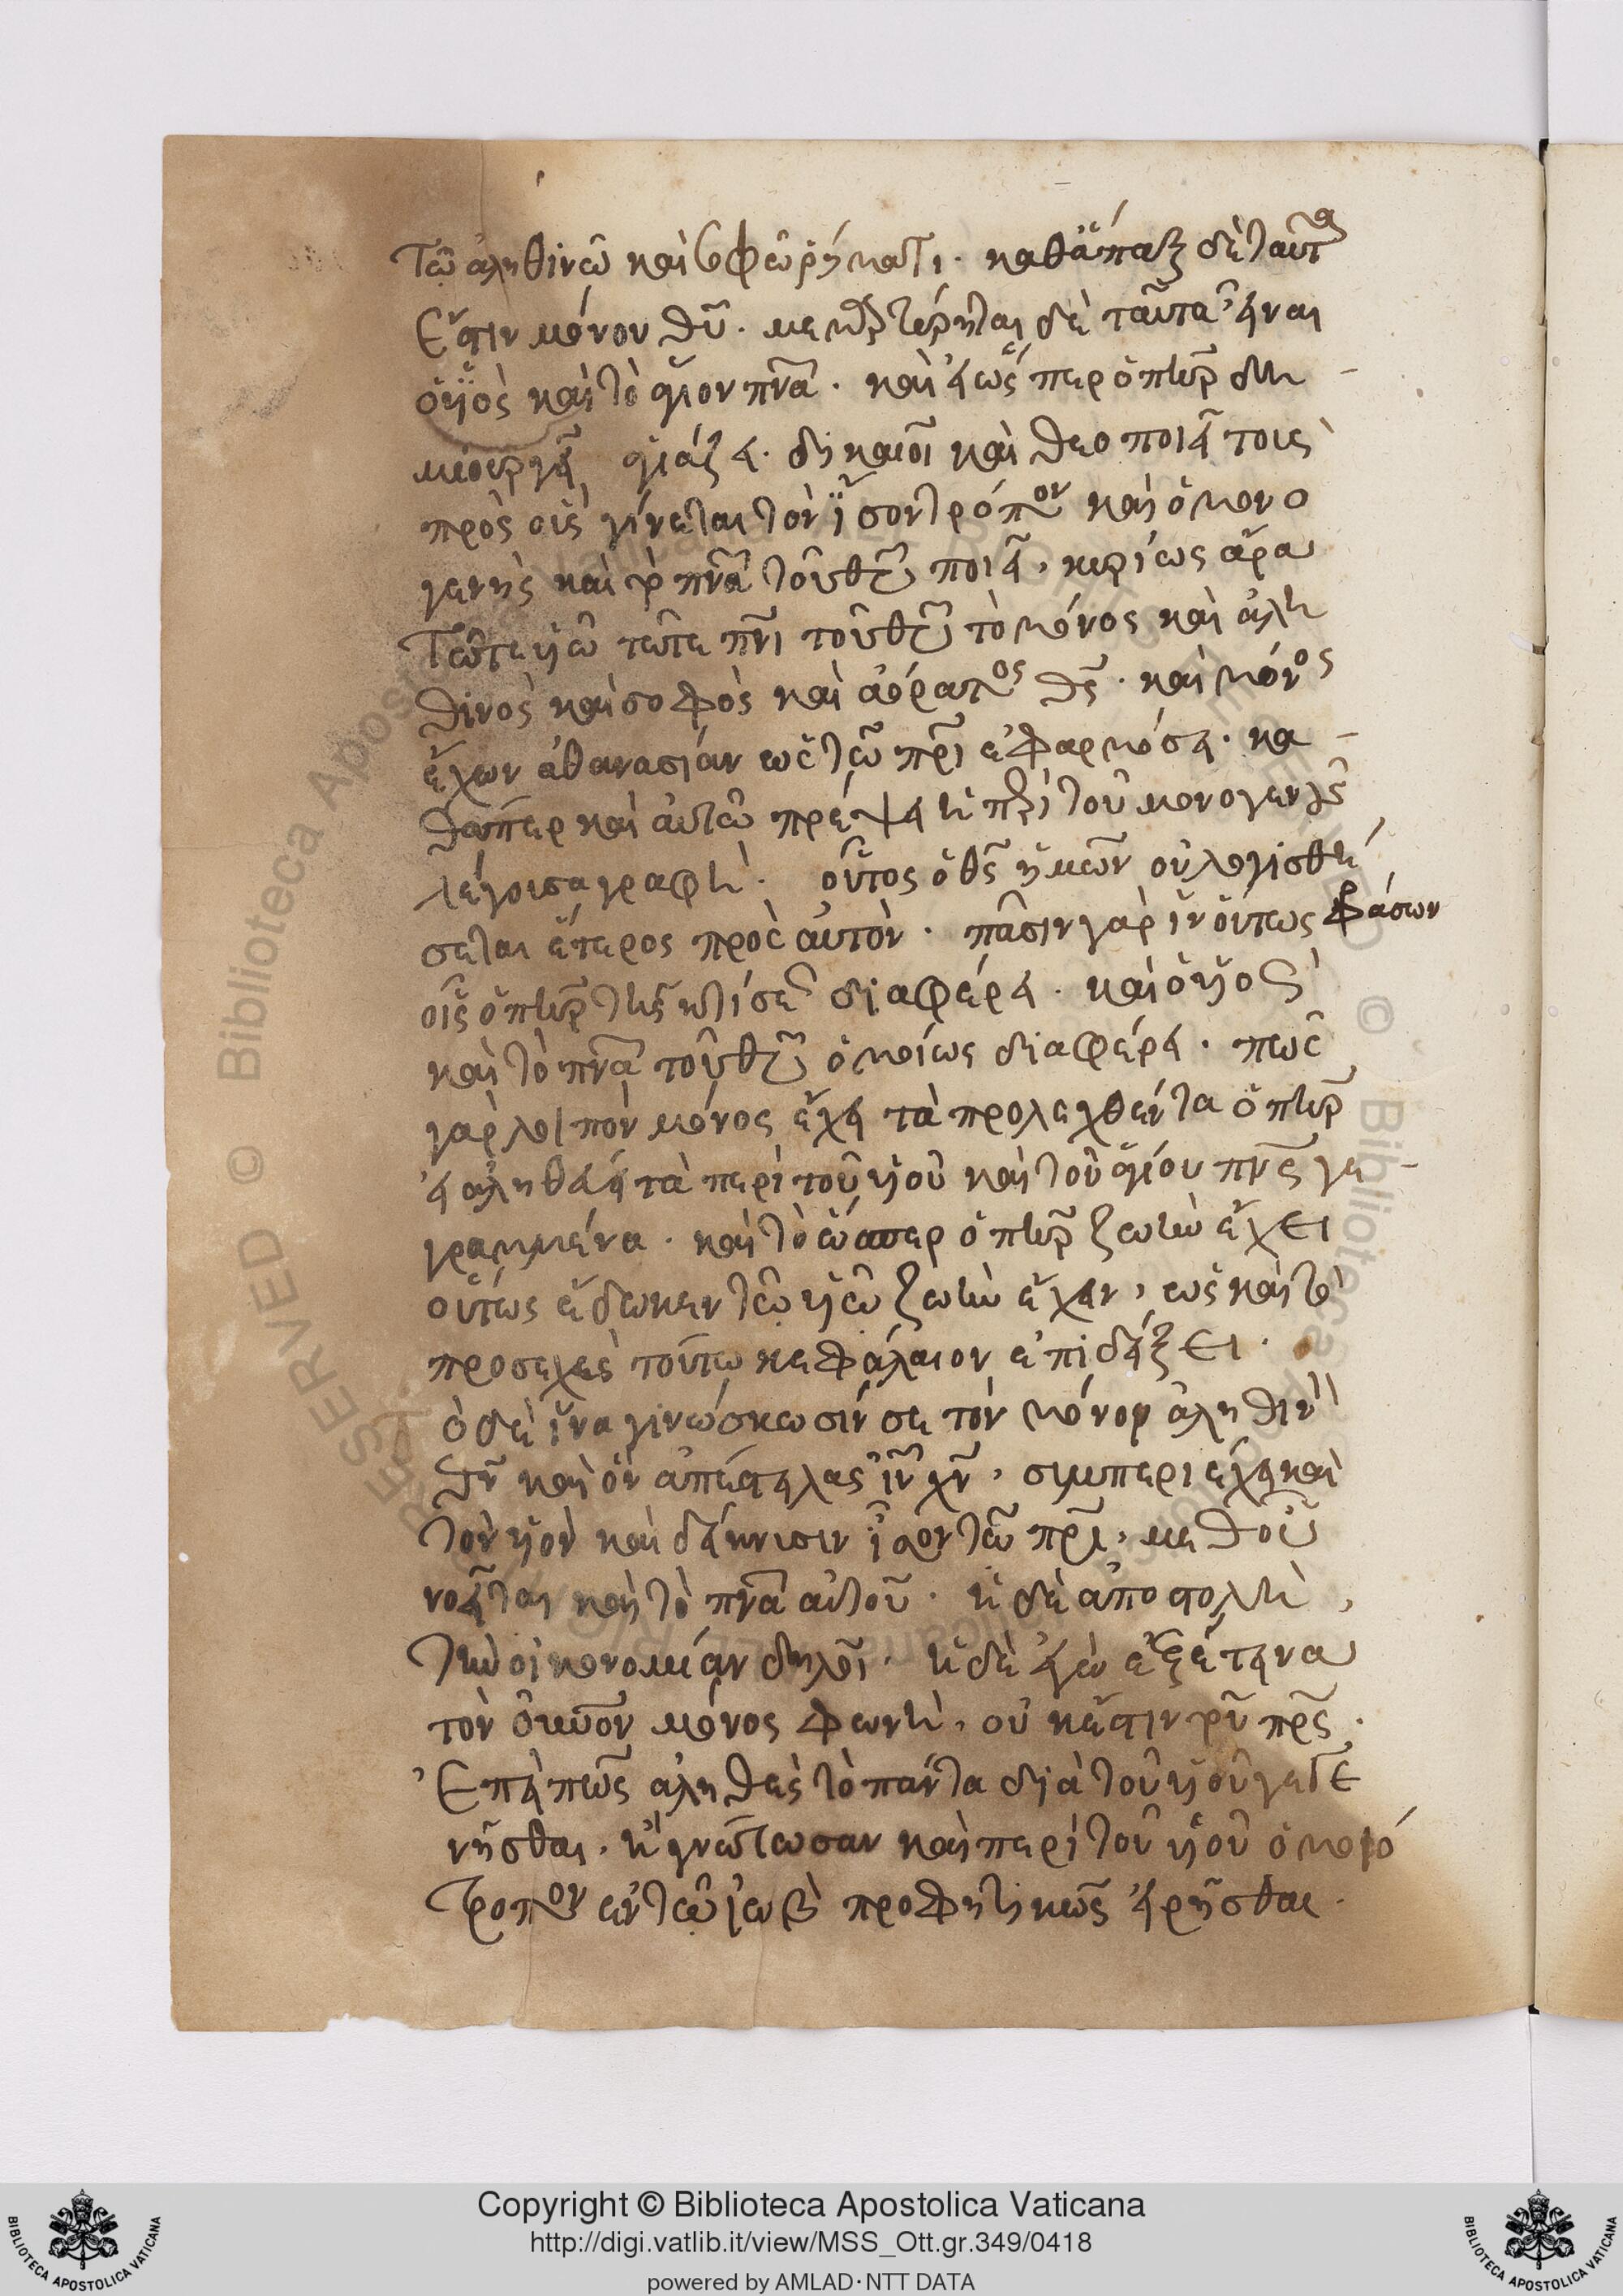 Τῶ ἀληθινῶ καὶ σοφῶ ῥήματι. καθάπαξ δὲ ταῦτα
Ἔστιν μόνου θῡ. μεμαρτύρηται δὲ ταῦτα εἶναι
ὁ ϋἱὸς καὶ τὸ ἅγιον πνᾶ. καὶ εἰ ὥσπερ ὁ πὴρ δη
μιουργεῖ ἁγιάζει. δικαιοῖ καὶ θεοποιεῖ τοὺς
πρὸς οὓς γίνεται τὸν ἴσον τρόπον καὶ ὁ μονο
γενὴς καὶ τὸ πνᾶ τοῦ θῡ ποιεῖ, κυρίως ἄρα
Τῶτε ϋἱῶ τῶτε πνι τοῦ θῡ τὸ μόνος καὶ ἀλη
θινὸς καὶ σοφὸς καὶ ἀόρατος θς. καὶ μόνος
ἔχων ἀθανασίαν ὡς τῶ πρι ἐφαρμόσει. κα
θάπερ καὶ αὐτῶ πρέψει ἡ περὶ τοῦ μονογενοῦς
λέγουσα γραφή. οὗτος ὁ θς ἡμῶν οὐ λογισθή
σεται ἕτερος πρὸς αὐτὸν. πᾶσιν γὰρ ἵν οὕτως φράσων
οἷς ὁ πὴρ τῆς κτίσεως διαφέρει. καὶ ὁ ϋἱὸς
καὶ τὸ πνᾶ τοῦ θῡ ὁμοίως διαφέρει. πῶς
γὰρ λοιπὸν μόνος ἔχει τὰ προλεχθέντα ὁ πὴρ
εἰ ἀληθῆ τὰ περὶ τοῦ ϋἱοῦ καὶ τοῦ ἁγίου πνς γε
γραμμένα. καὶ τὸ ὥσπερ ὁ πὴρ ζωὴν ἔχει
οὕτως ἔδωκεν τῶ ϋἱῶ ζωὴν ἔχειν, ὡς καὶ τὸ
προσεχὲς τούτω κεφάλαιον ἐπιδείξει.
ὁ δὲ ἵνα γινώσκωσίν σε τὸν μόνον ἀληθινὸν
θν καὶ ὃν ἀπέστειλας ῑν χν, συμπεριέχει καὶ
τὸν ϋἱὸν καὶ δείκνυσιν ἴσον τῶ πρι, μεθ οὗ
νοεῖται καὶ τὸ πνᾶ αὐτοῦ. ἡ δὲ ἀποστολὴ,
τὴν οἰκονομίαν δηλοῖ. ἡ δὲ ἐγὼ ἐξέτεινα
τὸν οὐνον μόνος φωνή, οὐκ ἔστιν τοῦ πρς.
Ἐπεὶ πῶς ἀληθὲς τὸ πάντα διὰ τοῦ ϋἱοῦ γεγε
νῆσθαι. ἢ γνώτωσαν καὶ περὶ τοῦ ϋἱοῦ ὁμοιό
τροπον ἐν τῶ ἰὼβ προφητικῶς εἰρῆσθαι.
Copyright © Biblioteca Apostolica Vaticana
http://digi.vatlib.it/view/MSS_Ott.gr.349/0418
powered by AMLAD·NTT DATA